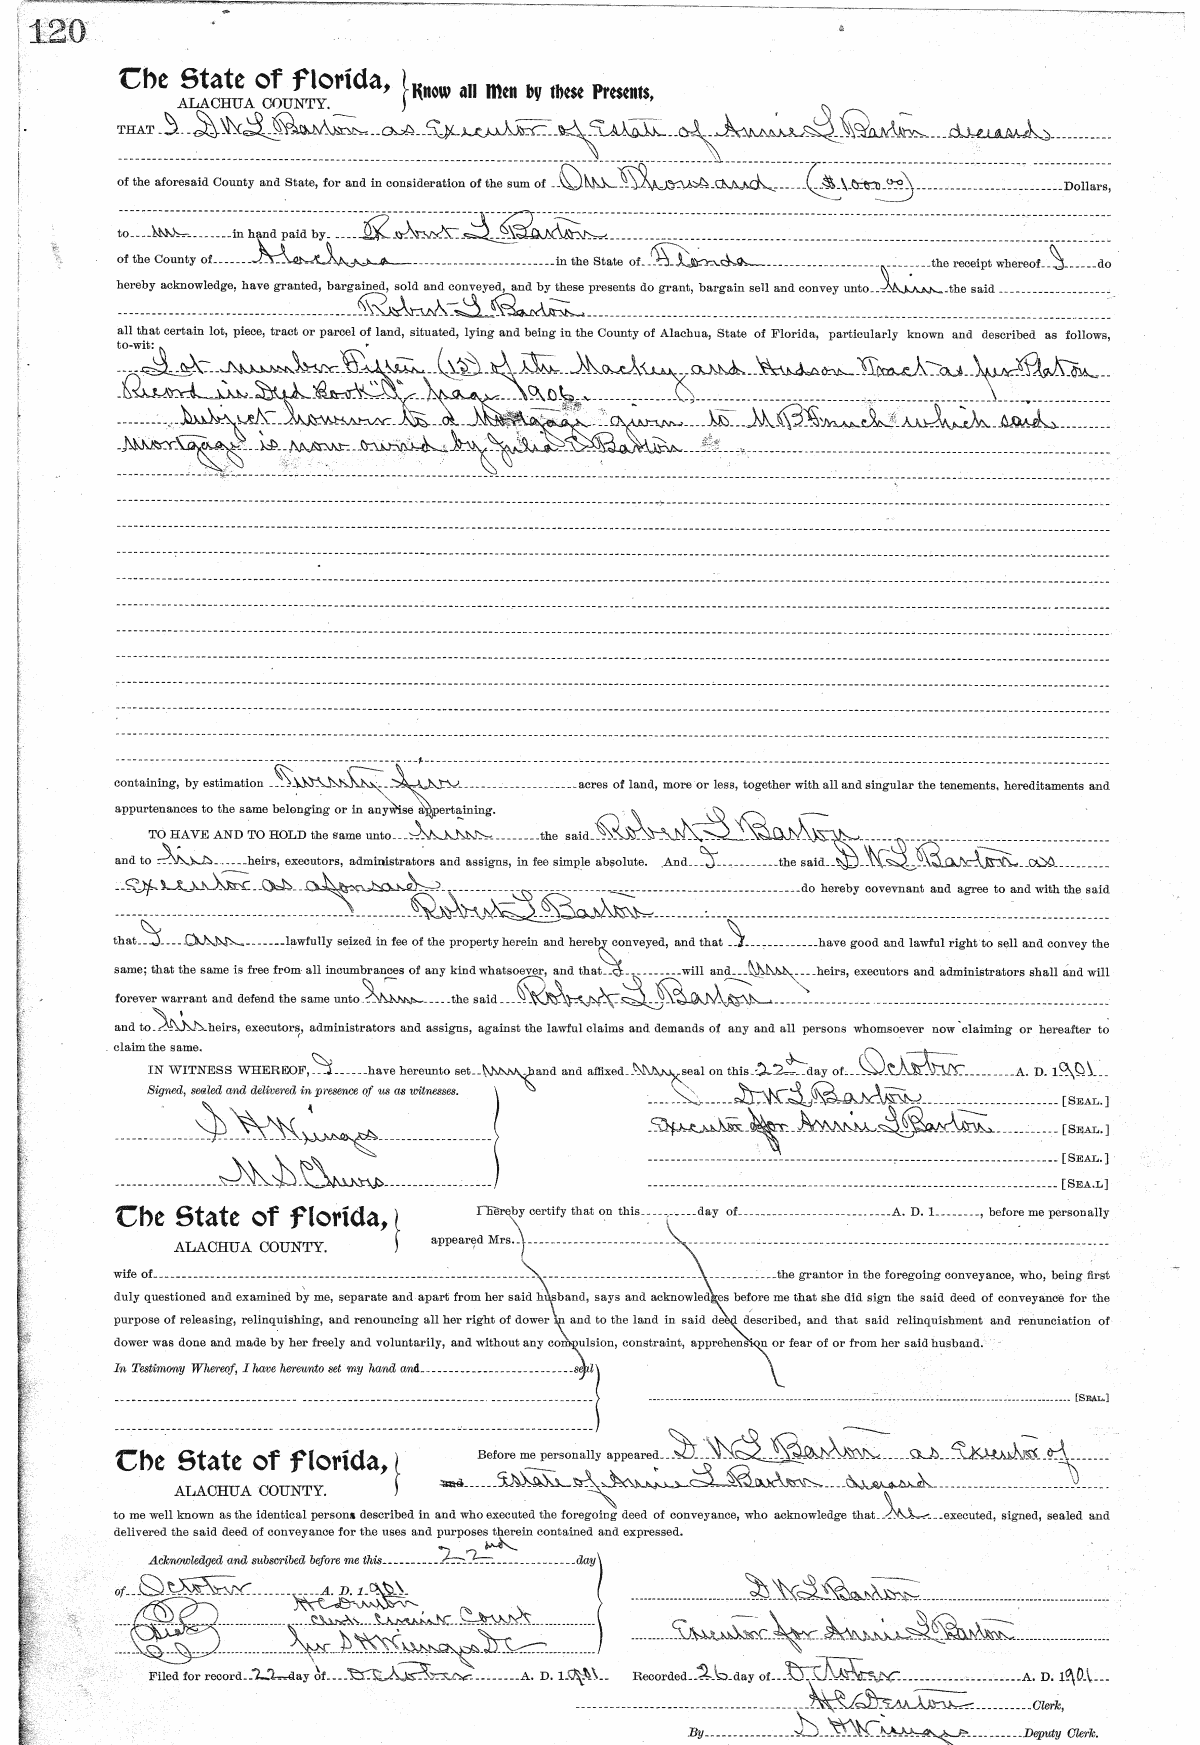 120
The State of Florida, Know all Men by these Presents,
ALACHUA COUNTY.
THAT I D W L Barton as Executor of Estate of Annie L Barton deceased
of the aforesaid County and State, for and in consideration of the sum of One Thousand ($1000.00) Dollars,
to me in hand paid by Robert L Barton
of the County of Alachua in the State of Florida the receipt whereof I do
hereby acknowledge, have granted, bargained, sold and conveyed, and by these presents do grant, bargain sell and convey unto him the said
Robert L Barton
all that certain lot, piece, tract or parcel of land, situated, lying and being in the County of Alachua, State of Florida, particularly known and described as follows,
to-wit:
Lot number Fifteen (15) of the Mackey and Hudson Tract as per Plat on
Record in Deed Book page 190
Subject however to a Mortgage given to M B French which said
mortgage is now owned by Julia E Barton
containing, by estimation Twenty five acres of land, more or less, together with all and singular the tenements, hereditaments and
appurtenances to the same belonging or in anywise appertaining.
TO HAVE AND TO HOLD the same unto him the said Robert L Barton
and to his heirs, executors, administrators and assigns, in fee simple absolute. And I the said D W L Barton as
Executor as aforesaid do hereby covevnant and agree to and with the said
Robert L Barton
that I am lawfully seized in fee of the property herein and hereby conveyed, and that I have good and lawful right to sell and convey the
same; that the same is free from all incumbrances of any kind whatsoever, and that I will and my heirs, executors and administrators shall and will
forever warrant and defend the same unto him the said Robert L Barton
and to his heirs, executors, administrators and assigns, against the lawful claims and demands of any and all persons whomsoever now claiming or hereafter to
claim the same.
IN WITNESS WHEREOF, I have hereunto set my hand and affixed my seal on this 22d day of October A. D. 1901
Signed, sealed and delivered in presence of us as witnesses. D W L Barton [SEAL.]
S H Wienges Executor for Annie L Barton [SEAL.]
[SEAL.]
M S Cheves [SEA.L]
The State of Florida, I hereby certify that on this day of A. D. 1 , before me personally
ALACHUA COUNTY. appeared Mrs.
wife of the grantor in the foregoing conveyance, who, being first
duly questioned and examined by me, separate and apart from her said husband, says and acknowledges before me that she did sign the said deed of conveyance for the
purpose of releasing, relinquishing, and renouncing all her right of dower in and to the land in said deed described, and that said relinquishment and renunciation of
dower was done and made by her freely and voluntarily, and without any compulsion, constraint, apprehension or fear of or from her said husband.
In Testimony Whereof, I have hereunto set my hand and seal
[SEAL.]
The State of Florida, Before me personally appeared D W L Barton as Executor of
ALACHUA COUNTY. and Estate of Annie L Barton deceased
to me well known as the identical persons described in and who executed the foregoing deed of conveyance, who acknowledge that he executed, signed, sealed and
delivered the said deed of conveyance for the uses and purposes therein contained and expressed.
Acknowledged and subscribed before me this 22nd day
of October A. D. 1901 D W L Barton
H C Denton
Clerk Circuit Court Executor for Annie L Barton
per S H Wienges D C
Filed for record 22 day of October A. D. 1901 Recorded 26 day of October A. D. 1901
H C Denton Clerk,
By S H Wienges Deputy Clerk.